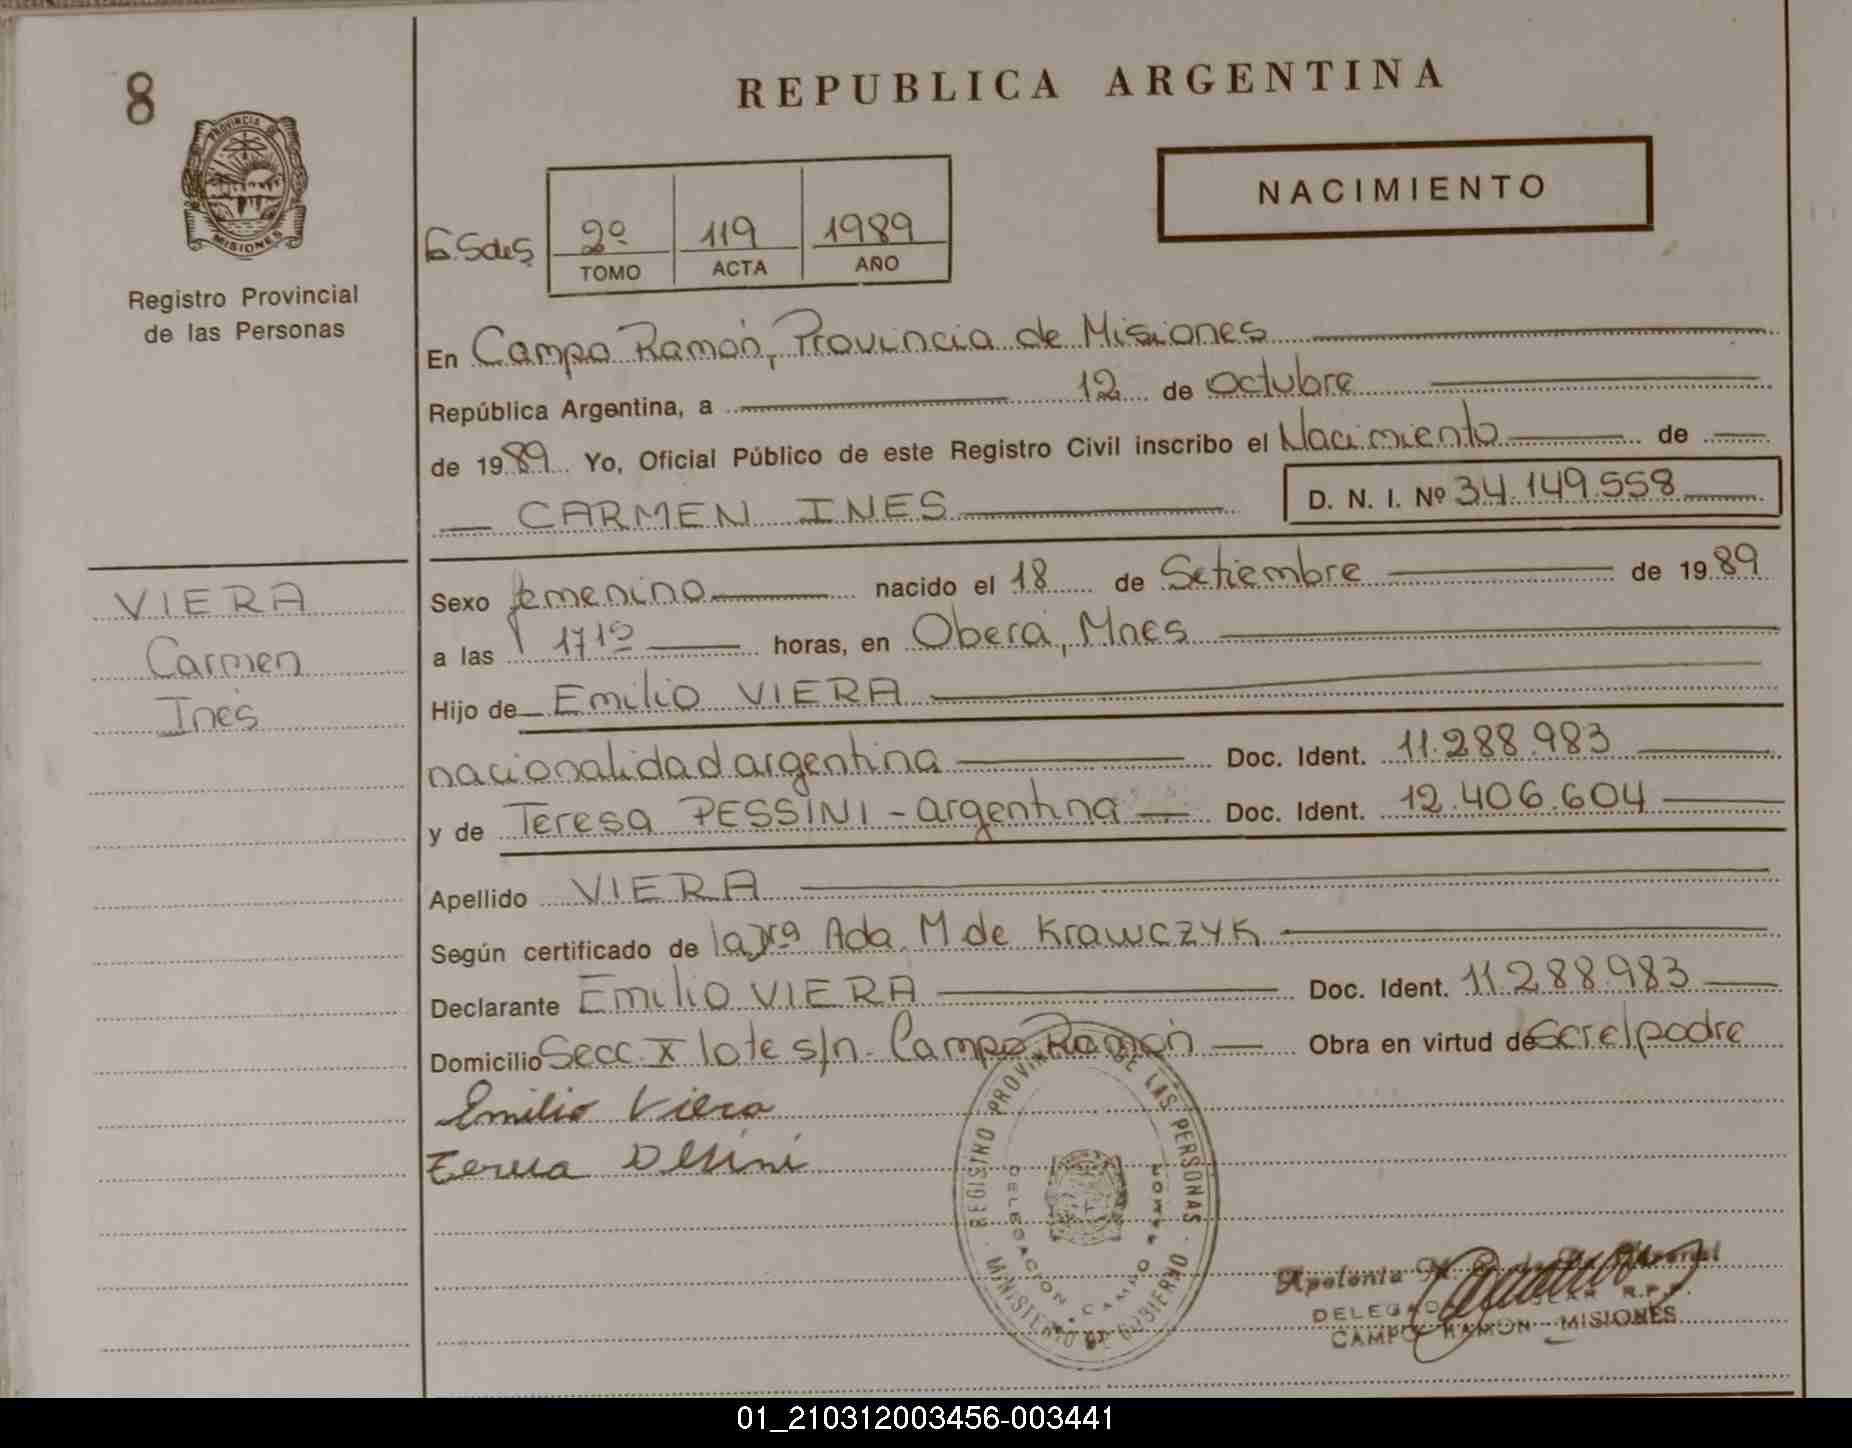 8
PROVINCIA DE
MISIONES
Registro Provincial
de las Personas
REPUBLICA ARGENTINA
NACIMIENTO
2º 119 1989
TOMO ACTA AÑO
En Campo Ramón, Provincia de Misiones
República Argentina, a 12 de Octubre
de 1989 Yo, Oficial Público de este Registro Civil inscribo el Nacimiento de
CARMEN INES
D. N. I. Nº 34.149.558
VIERA
Carmen
Inés
Sexo femenino nacido el 18 de Setiembre de 1989
a las 17 10 horas, en Oberá, Mnes
Hijo de Emilio VIERA
nacionalidad argentina Doc. Ident. 11.288.983
y de Teresa PESSINI - argentina Doc. Ident. 12.406.604
Apellido VIERA
Según certificado de la Dra Ada M de Krawczyk
Declarante Emilio VIERA Doc. Ident. 11.288.983
Domicilio Secc. X lote s/n. Campo Ramón Obra en virtud de ser el padre
Emilio Viera
REGISTRO PROVINCIAL DE LAS PERSONAS
MINISTERIO DE GOBIERNO
DELEGACION CAMPO RAMON
Apolonia
CAMPO RAMON - MISIONES
01_210312003456-003441